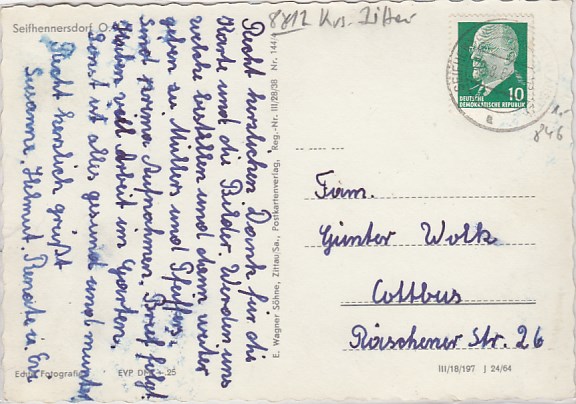 8812 Krs. Zittau
Seifhennersdorf O.
Recht herzlichen Dank für die
Karte und die Bilder. Werden uns
welche bestellen und dann weiter
geben zu Müllers und Pfeiffers,
sind prima Aufnahmen. Brief folgt.
Haben viel Arbeit im Garten,
sonst ist alles gesund und munter
Recht herzlich grüßt
Susanne, Helmut, Renate u.
Echte Fotografie
EVP DM -.25
E. Wagner Söhne, Zittau/Sa., Postkartenverlag, Reg.-Nr. III/28/38 Nr. 144
10
DEUTSCHE
DEMOKRATISCHE REPUBLIK
a
1.-
846
Fam.
Günter Wolk
Cottbus
Räschener Str. 26
III/18/197 J 24/64